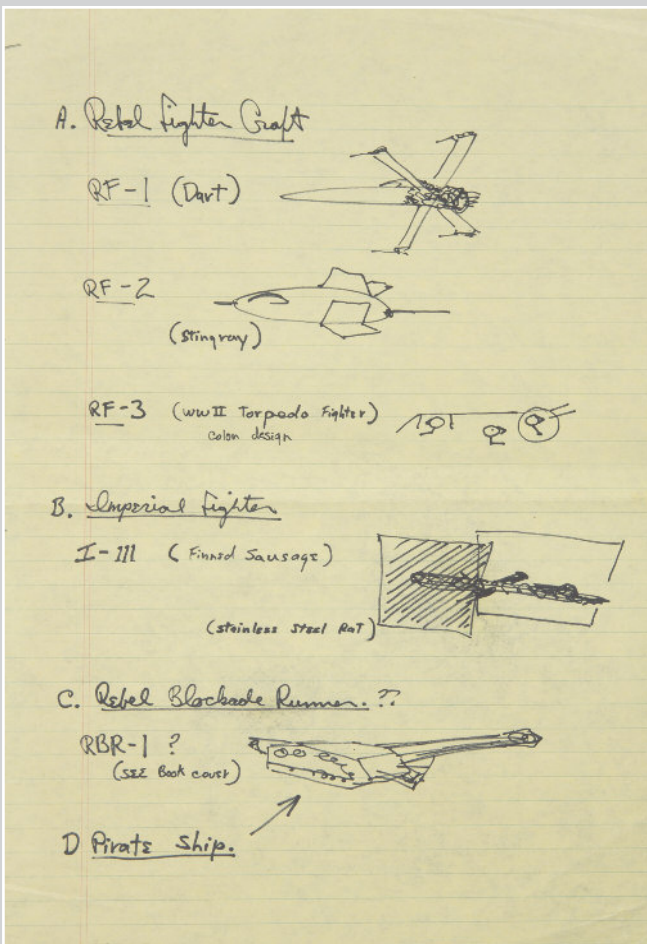 A. Rebel Fighter Craft
RF-1 (Dart)
RF-2
(Stingray)
RF-3 (WWII Torpedo Fighter)
colon design
B. Imperial Fighter
I-III (Finned Sausage)
(Stainless Steel Rat)
C. Rebel Blockade Runner. ??
RBR-1 ?
(SEE Book cover)
D Pirate Ship.